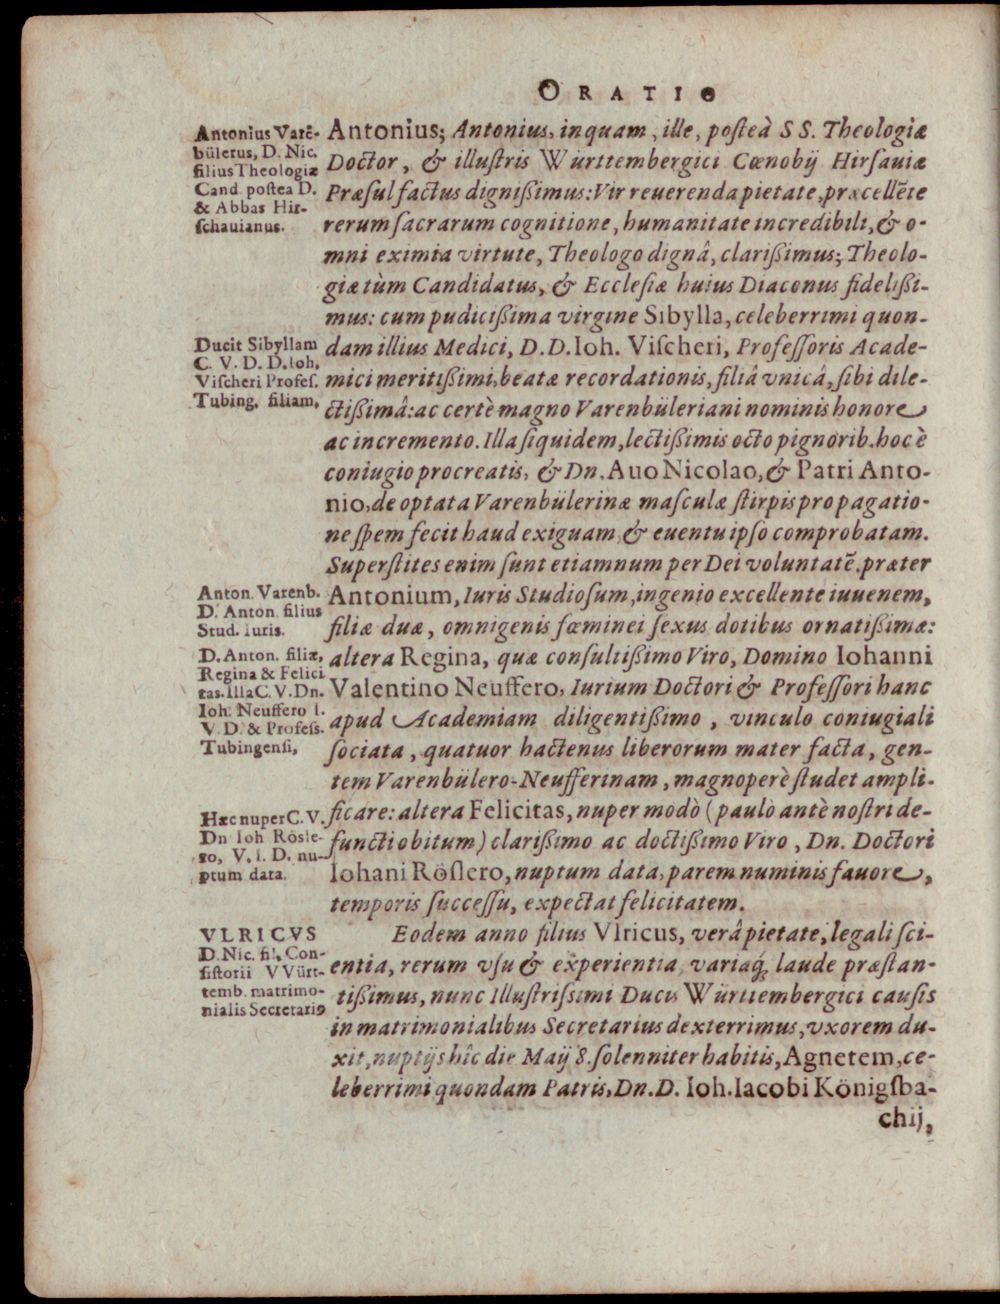 ORATIO
Antonius Varē-
bülerus, D. Nic.
filius Theologiæ
Cand. postea D.
& Abbas Hir-
schauianus.
Antonius; Antonius, inquam, ille, posteà SS. Theologiæ
Doctor, & illustris Württembergici Cœnobij Hirsauiæ
Præsul factus dignißimus: Vir reuerenda pietate, præcellēte
rerum sacrarum cognitione, humanitate incredibili, & o-
mni eximia virtute, Theologo dignâ, clarißimus; Theolo-
giæ tùm Candidatus, & Ecclesiæ huius Diaconus fidelißi-
mus: cum pudicißima virgine Sibylla, celeberrimi quon-
Ducit Sibyllam
C. V. D. D. Ioh.
Vischeri Profes.
Tubing. filiam,
dam illius Medici, D. D. Ioh. Vischeri, Professoris Acade-
mici meritißimi, beatæ recordationis, filiâ vnicâ, sibi dile-
ctißimâ: ac certè magno Varenbüleriani nominis honore
ac incremento. Illa siquidem, lectißimis octo pignorib. hoc è
coniugio procreatis, & Dn. Auo Nicolao, & Patri Anto-
nio, de optata Varenbülerinæ masculæ stirpis propagatio-
ne spem fecit haud exiguam, & euentu ipso comprobatam.
Superstites enim sunt etiamnum per Dei voluntatē. præter
Anton. Varenb.
D. Anton filius
Stud. Iuris.
Antonium, Iuris Studiosum, ingenio excellente iuuenem,
filiæ duæ, omnigenis fœminei sexus dotibus ornatißimæ:
D. Anton. filiæ,
Regina & Felici
tas. Illa C. V. Dn.
Ioh. Neuffero I.
V. D. & Profess.
Tubingensi,
altera Regina, quæ consultißimo Viro, Domino Iohanni
Valentino Neuffero, Iurium Doctori & Professori hanc
apud Academiam diligentißimo, vinculo coniugiali
sociata, quatuor hactenus liberorum mater facta, gen-
tem Varenbülero-Neufferinam, magnoperè studet ampli-
Hæc nuper C. V.
Dn Ioh Rösle-
ro, V. I. D. nu-
ptum data.
ficare: altera Felicitas, nuper modò (paulò antè nostri de-
functi obitum) clarißimo ac doctißimo Viro, Dn. Doctori
Iohani Röslero, nuptum data, parem numinis fauore,
temporis successu, expectat felicitatem.
VLRICVS
D. Nic. fil. Con-
sistorii VVürt-
temb. matrimo-
nialis Secretariꝰ
Eodem anno filius Vlricus, verâ pietate, legali sci-
entia, rerum vsu & experientia, variaq́; laude præstan-
tißimus, nunc Illustrissimi Ducis Würtembergici causis
in matrimonialibus Secretarius dexterrimus, vxorem du-
xit, nuptijs hîc die Maij 8. solenniter habitis, Agnetem, ce-
leberrimi quondam Patris, Dn. D. Ioh. Iacobi Königsba-
chij,